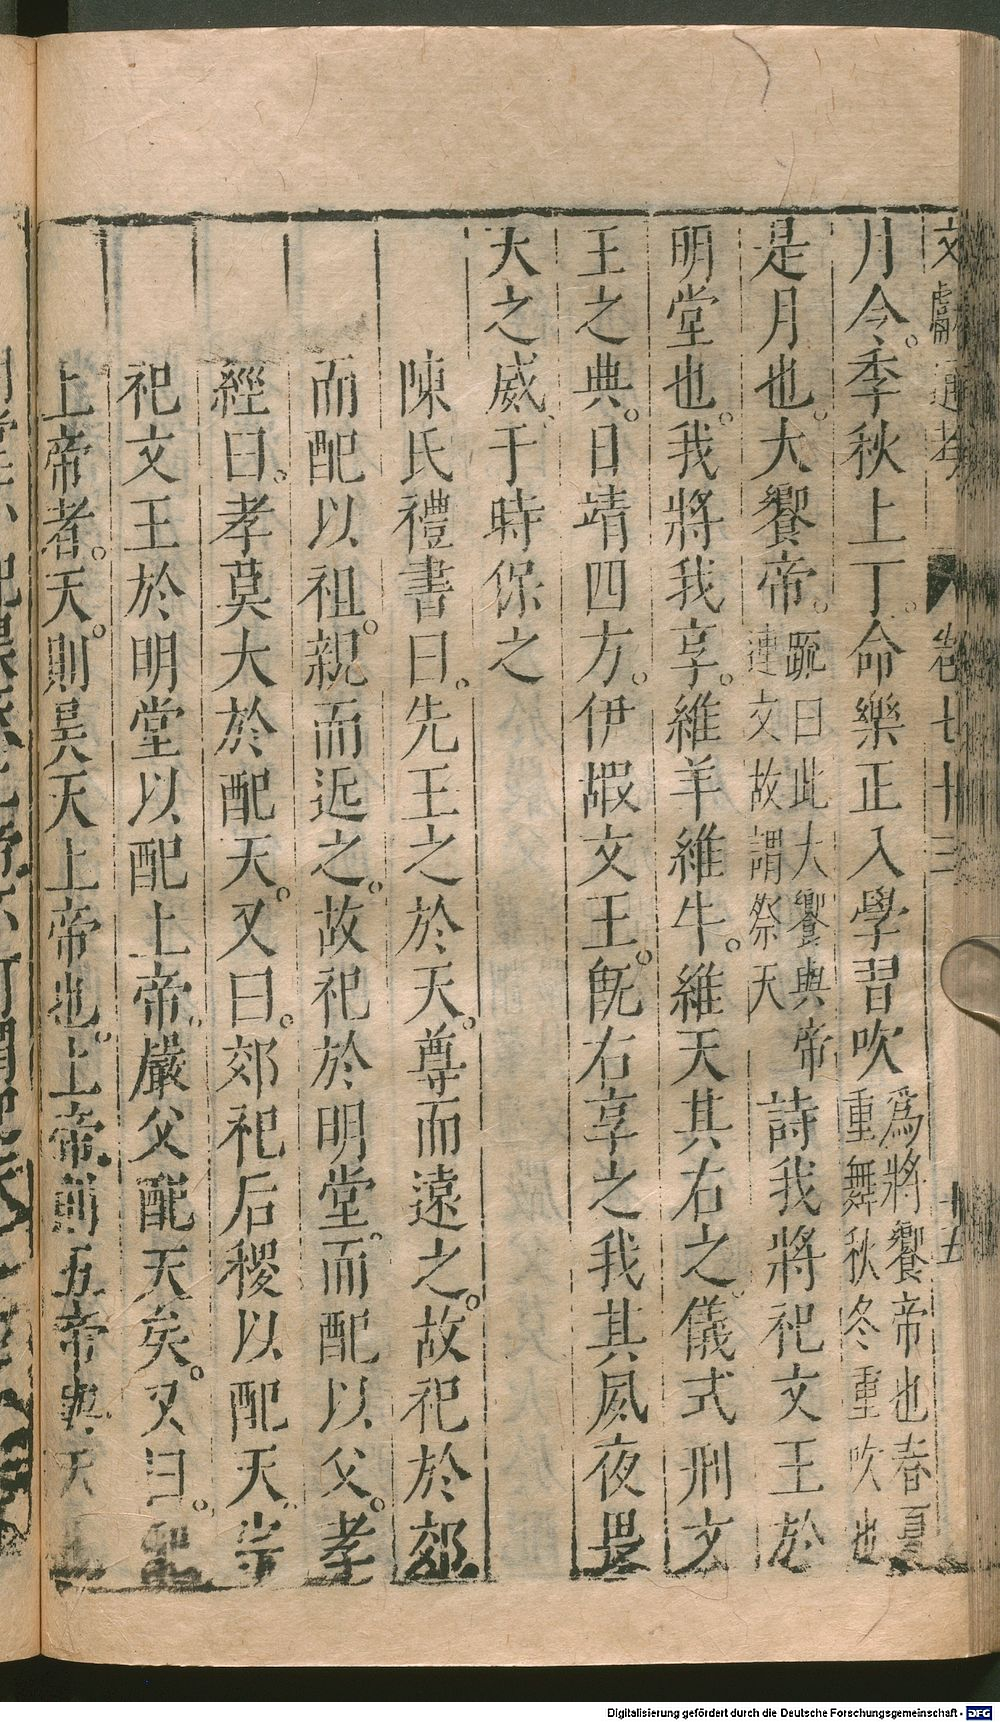 文獻通考 卷七十三 十五
月令季秋上丁命樂正入學習吹爲將饗帝也春夏重舞秋冬重吹也
是月也大饗帝䟽曰此大饗與帝連文故謂祭天詩我將祀文王於
明堂也我將我享維羊維牛維天其右之儀式刑文
王之典日靖四方伊嘏文王旣右享之我其夙夜畏
天之威于時保之
陳氏禮書曰先王之於天尊而遠之故祀於郊
而配以祖親而近之故祀於明堂而配以父孝
經曰孝莫大於配天又曰郊祀后稷以配天宗
祀文王於明堂以配上帝嚴父配天矣又曰
上帝者天則昊天上帝也上帝則五帝與天
Digitalisierung gefördert durch die Deutsche Forschungsgemeinschaft - DFG